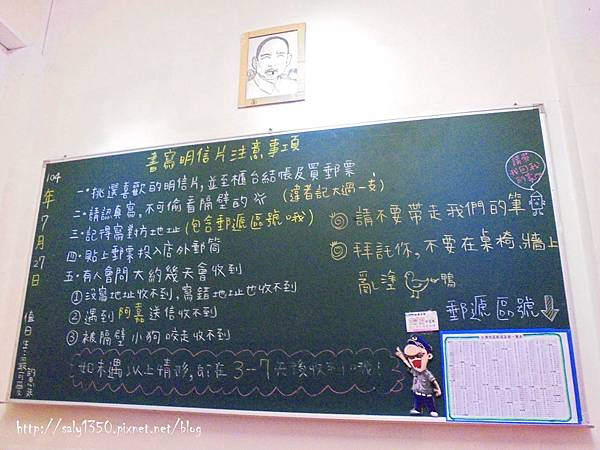 書寫明信片注意事項
104年7月27日
值日生:
一.挑選喜歡的明信片,並至櫃台結帳及買郵票
二.請認真寫,不可偷看隔壁的
(違者記大過一支)
三.記得寫對方地址(包含郵遞區號哦)
四.貼上郵票投入店外郵筒
五.有人會問大約幾天會收到
①沒寫地址收不到,寫錯地址也收不到
②遇到阿嘉送信收不到
③被隔壁小狗咬走收不到
如未遇以上情形,約在3-7天後收到哦!
請不要帶走我們的筆
拜託你,不要在桌椅,牆上
亂塗鴨
郵遞區號
http://saly1350.pixnet.net/blog